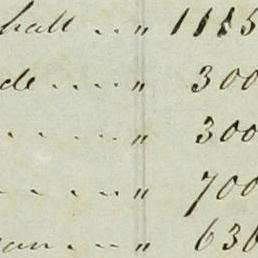 hall .. " 1185
de .... " 300
..... " 300
.... " 700
an .... " 636